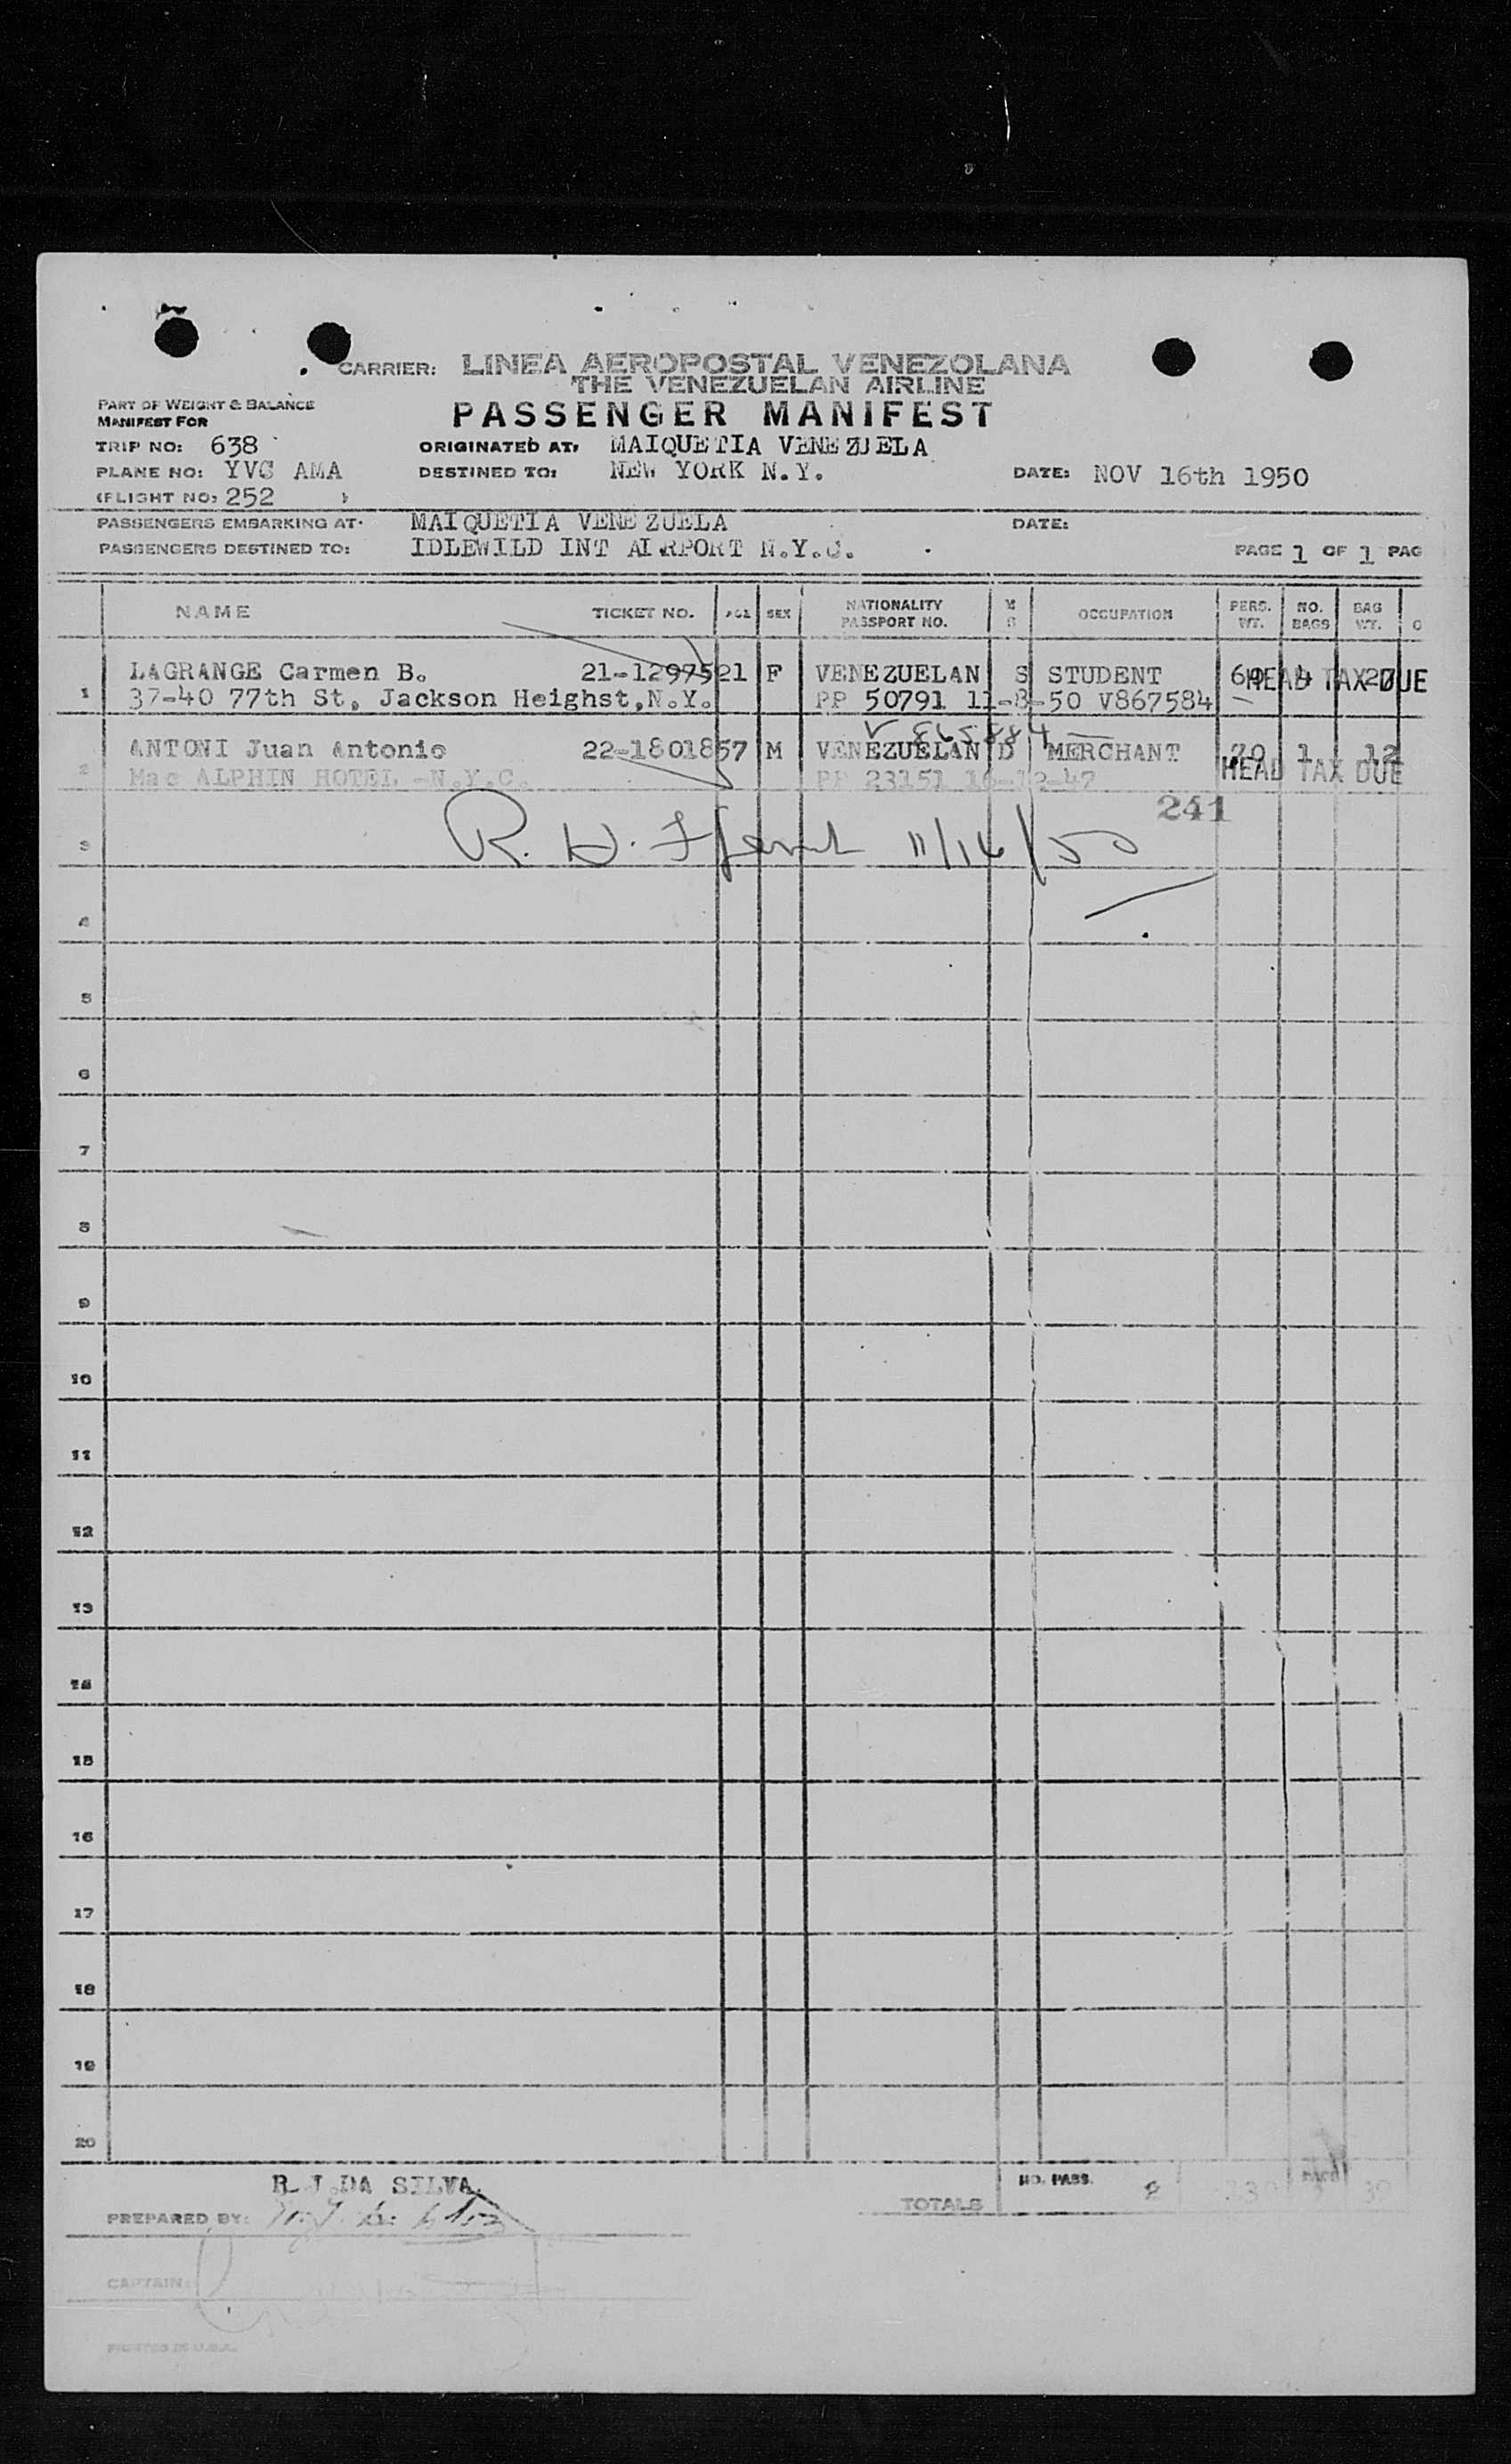 CARRIER: LINEA AEROPOSTAL VENEZOLANA
THE VENEZUELAN AIRLINE
PART OF WEIGHT & BALANCE
MANIFEST FOR
PASSENGER MANIFEST
TRIP NO: 638 ORIGINATED AT: MAIQUETIA VENEZUELA
PLANE NO: YVC AMA DESTINED TO: NEW YORK N.Y. DATE: NOV 16th 1950
(FLIGHT NO: 252 )
PASSENGERS EMBARKING AT: MAIQUETIA VENEZUELA DATE:
PASSENGERS DESTINED TO: IDLEWILD INT AIRPORT N.Y.C. PAGE 1 OF 1 PAG
NAME TICKET NO. AGE SEX NATIONALITY PASSPORT NO. M S OCCUPATION PERS. WT. NO. BAGS BAG WT. C
LAGRANGE Carmen B. 21-12975 21 F VENEZUELAN S STUDENT 60 4 27 HEAD TAX DUE
1 37-40 77th St, Jackson Heighst,N.Y. PP 50791 11-8-50 V867584
V 865884
ANTONI Juan Antonio 22-18018 57 M VENEZUELAN D MERCHANT 70 1 12
2 Mac ALPHIN HOTEL -N.Y.C. PP 23151 16-12-47 HEAD TAX DUE
241
3 R. H. 11/16/50
4
5
6
7
8
9
10
11
12
13
14
15
16
17
18
19
20
R J DA SILVA
NO. PASS. 2
TOTALS
PREPARED BY:
CAPTAIN:
PRINTED IN U.S.A.